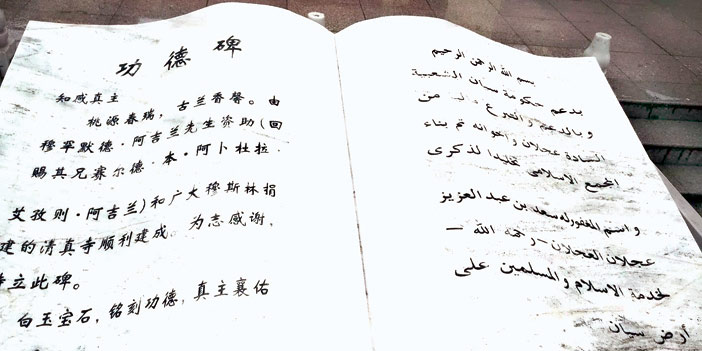 功德碑
知感真主
桃源春瑞，古兰香馨。由
穆罕默德·阿吉兰先生资助(回
赐其兄赛尔德·本·阿卜杜拉·
艾孜则·阿吉兰)和广大穆斯林捐
建的清真寺顺利建成。为志感谢，
立此碑。
白玉宝石，铭刻功德，真主襄佑
بسم الله الرحمن الرحيم
بدعم حكومة سان الشعبية
وبالدعم والتبرع من
السادة عجلان وإخوانه تم بناء
المجمع الاسلامي تخليدا لذكرى
واسم المغفورله سعد بن عبد العزيز
عجلان العجلان - رحمه الله -
لخدمة الاسلام والمسلمين على
أرض سان